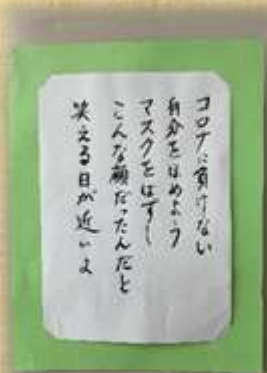 コロナに負けない
自分をほめよう
マスクをはずし
こんな顔だったんだと
笑える日が近いよ